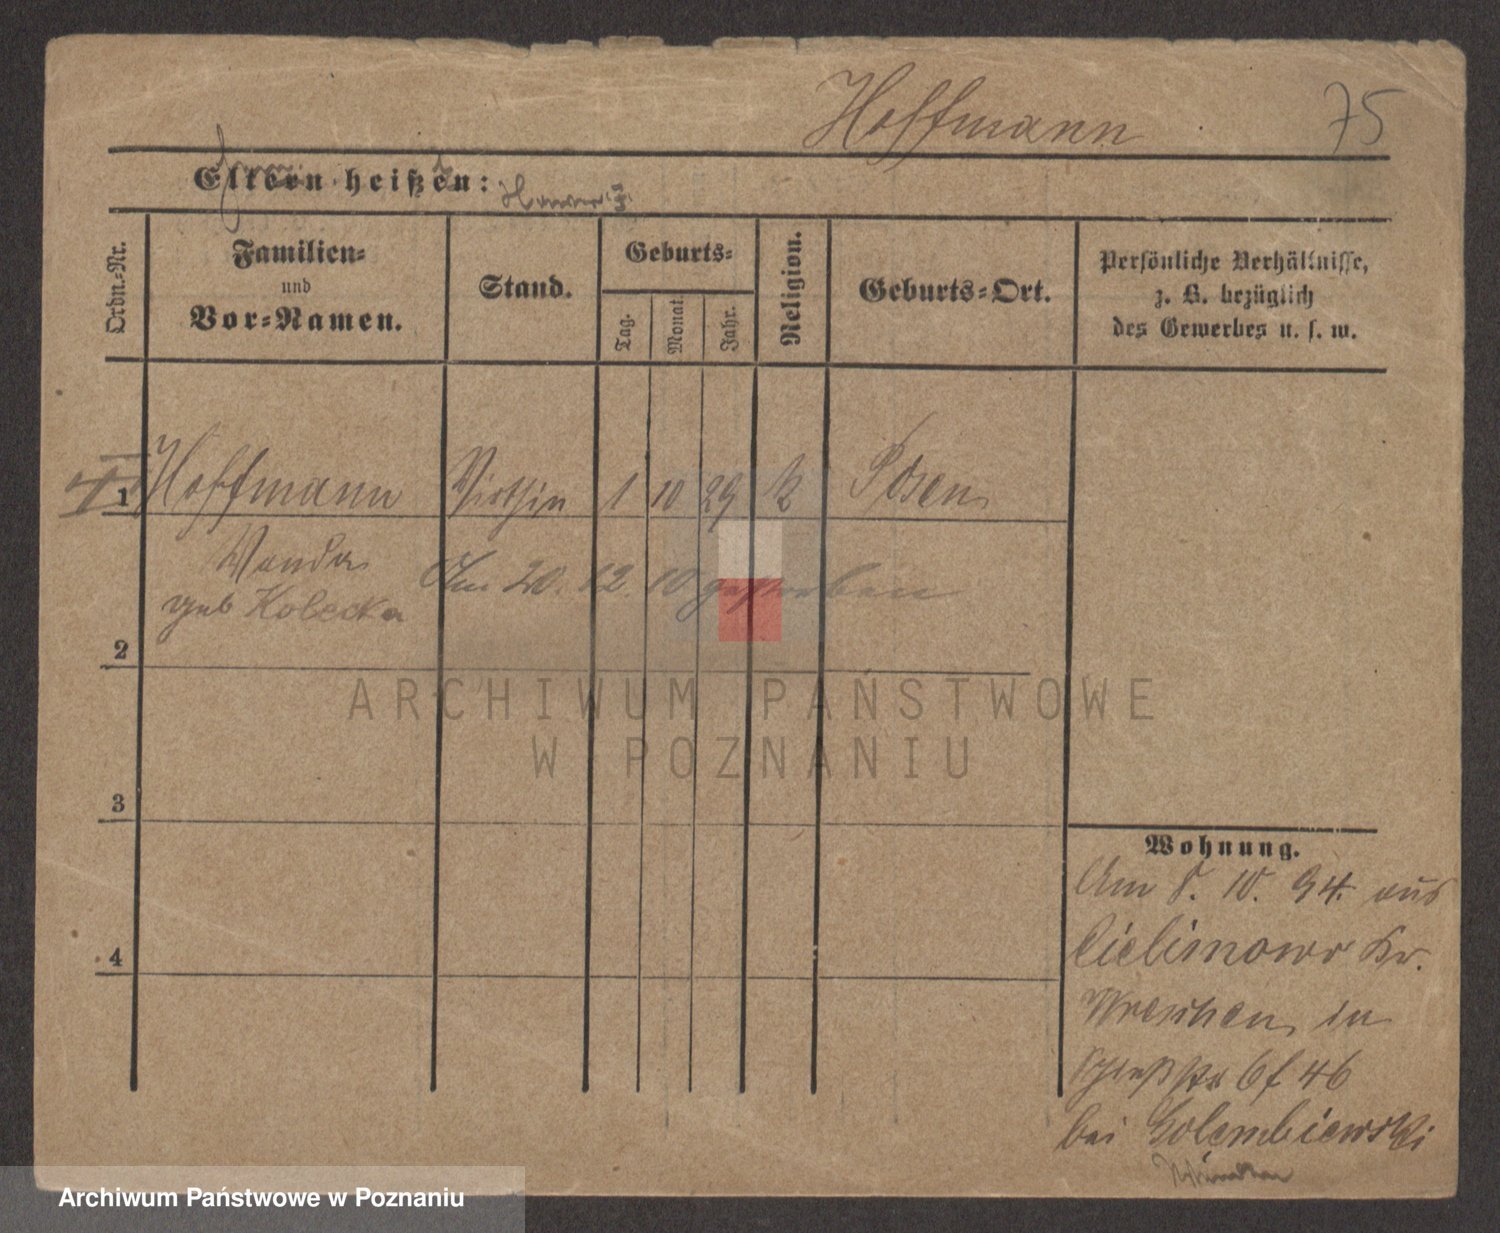 Hoffmann 75
Eltern heißen:
Ordn.-Nr.
Familien-
und
Vor-Namen.
Stand.
Geburts-
Tag.
Monat.
Jahr.
Religion.
Geburts-Ort.
Persönliche Verhältnisse,
z. B. bezüglich
des Gewerbes u. s. w.
1 Hoffmann Wirthin 1 10 29 k Posen
Wanda
geb Kobecka
Am 20. 12. 10 gestorben
2
3
4
Wohnung.
Am 8. 10. 94. aus
Cielimowo Kr.
Wreschen, in
46
bei Golembiewski
ARCHIWUM PAŃSTWOWE
W POZNANIU
Archiwum Państwowe w Poznaniu